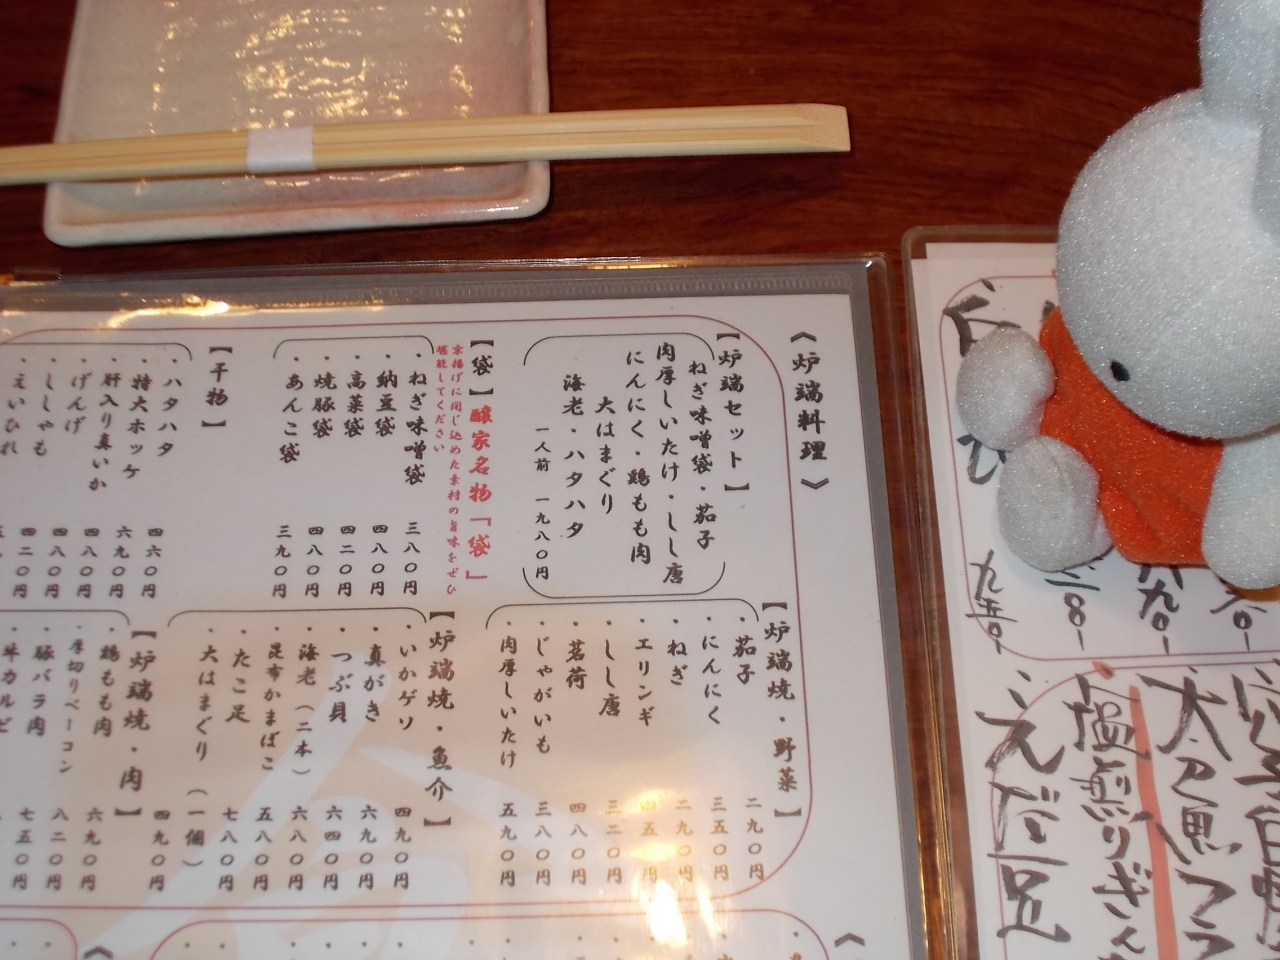 《炉端料理》
【炉端セット】
ねぎ味噌袋・茄子
肉厚しいたけ・しし唐
にんにく・鶏もも肉
大はまぐり
海老・ハタハタ
一人前 一九八〇円
【袋】醸家名物「袋」
京揚げに閉じ込めた素材の旨味をぜひ
堪能してください
・ねぎ味噌袋 三八〇円
・納豆袋 四八〇円
・高菜袋 四二〇円
・焼豚袋 四八〇円
・あんこ袋 三九〇円
【干物】
・ハタハタ 四六〇円
・特大ホッケ 六九〇円
・肝入り真いか 四八〇円
・げんげ 四八〇円
・ししゃも 四二〇円
・えいひれ
【炉端焼・野菜】
・茄子 二九〇円
・にんにく 三五〇円
・ねぎ 二九〇円
・エリンギ 四五〇円
・しし唐 三二〇円
・茗荷 四八〇円
・じゃがいも 三八〇円
・肉厚しいたけ 五九〇円
【炉端焼・魚介】
・いかゲソ 四九〇円
・真がき 六九〇円
・つぶ貝 六四〇円
・海老(二本) 六八〇円
・昆布かまぼこ 五八〇円
・たこ足 七八〇円
・大はまぐり(一個) 四九〇円
【炉端焼・肉】
・鶏もも肉 六九〇円
・厚切りベーコン 八二〇円
・豚バラ肉 七五〇円
・牛カルビ
九五〇-
太刀魚フラ
塩煎りぎん
えだ豆